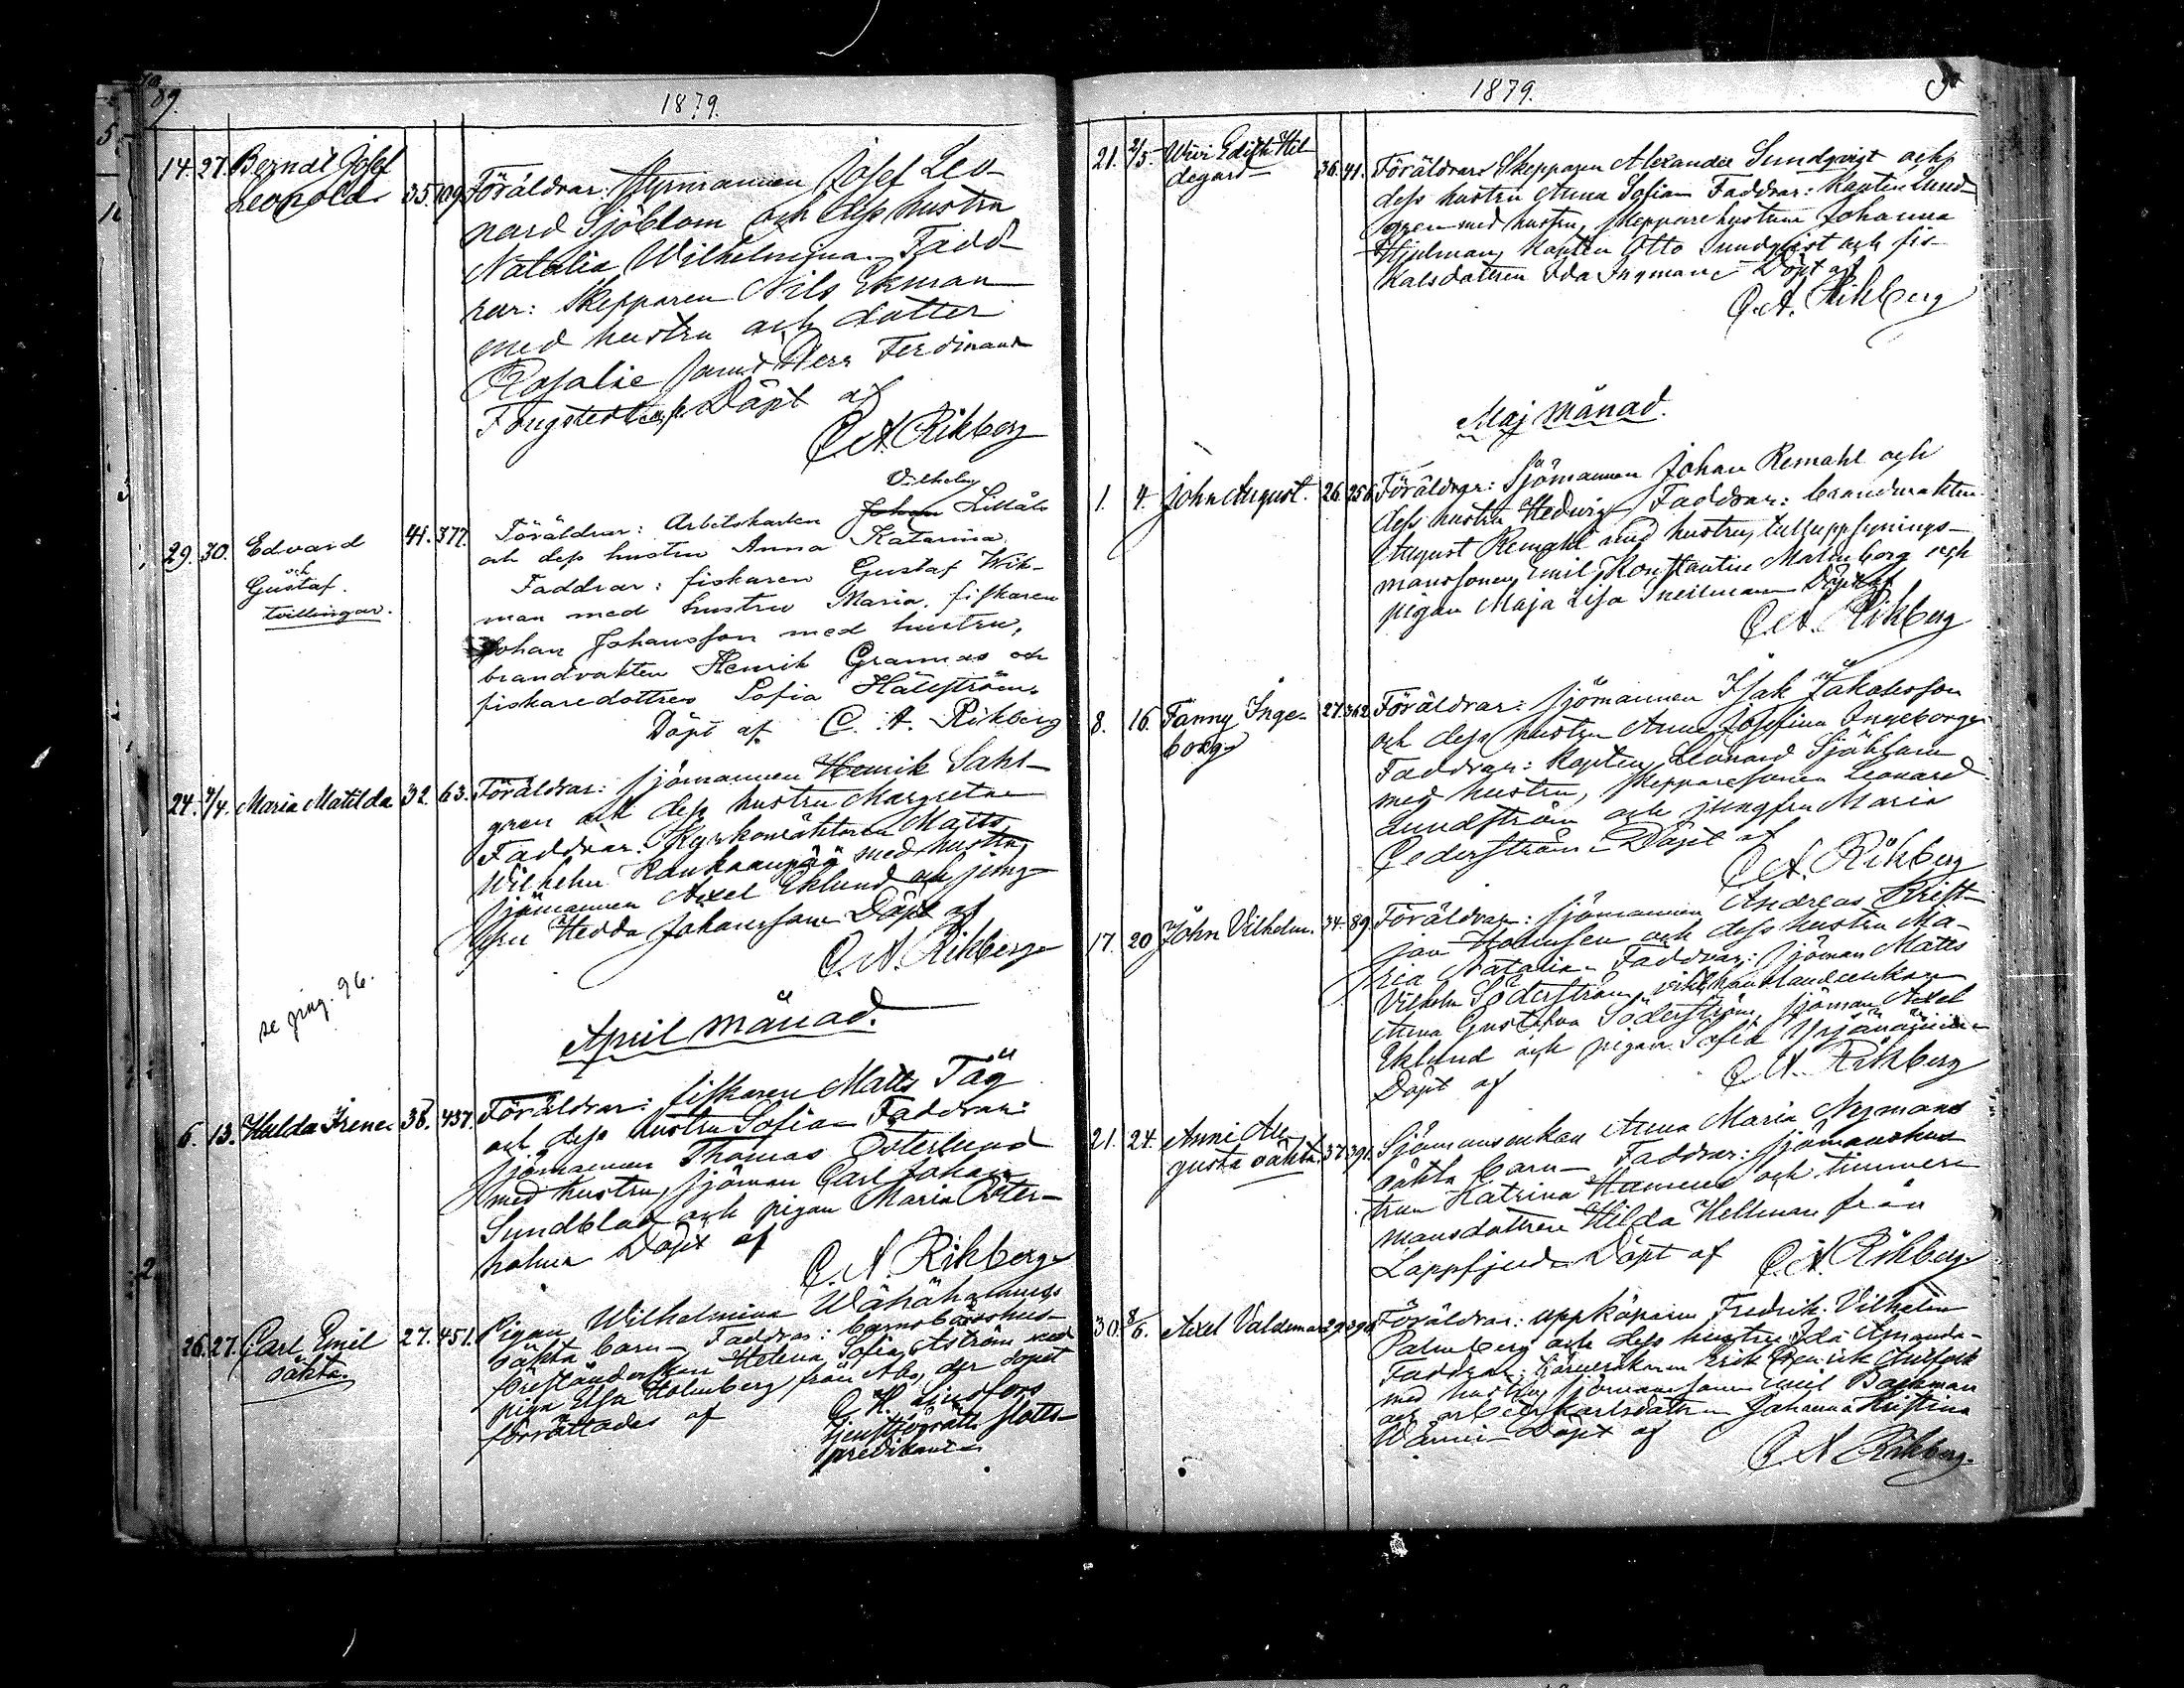 89.
1879.
14. 27. Berndt Josef
Leopold 35. 109. Föräldrar: Styrmannen Josef Leo-
nard Sjöblom och dess hustru
Natalia Wilhelmina Fadd-
rar: Skepparen Nils Ekman
med hustru och dotter
Rosalie samt Herr Ferdinand
Döpt af
C. A. Rikberg
29. 30. Edvard
och
Gustaf.
tvillingar.
41. 377. Föräldrar: Arbetskarlen Johan Vilhelm
och dess hustru Anna Katarina.
Faddrar: fiskaren Gustaf Wik-
man med hustru Maria, fiskaren
Johan Johansson med hustru,
brandvakten Henrik Grannas och
fiskaredottren Sofia Hällström.
Döpt af C. A. Rikberg
24. 4/4. Maria Matilda 32. 63. Föräldrar: sjömannen Henrik Sahl-
gren och dess hustru Margreta
Faddrar: Kyrkoväktaren Matts
Wilhelm med hustru,
sjömannen Axel Eklund och jung-
fru Hedda Johansson Döpt af
C. A. Rikberg
se pag. 96.
April månad.
6. 13. Hulda Irene 38. 437. Föräldrar: fiskaren Matts Täg
och dess hustru Sofia Faddrar:
sjömannen Thomas Österlund
med hustru, sjöman Carl Johan
Sundblad och pigan Maria Öster-
holm Döpt af
C. A. Rikberg
26. 27. Carl Emil
oäkta.
27. 451. Pigan Wilhelmina
oäkta barn Faddrar: barnbördshus-
föreståndarskan Helena Sofia Åström med
piga Elsa Holmberg från Åbo, der dopet
förrättades af
C. H. Lindfors
tjenstförrätt. slotts-
predikant
1879.
21. 2/5. Wivi Edith Hil-
degard 36. 41. Föräldrar: Skepparen Alexander Sundqvist och
dess hustru Anna Sofia Faddrar: Kapten Lund-
gren med hustru, skepparehustrun Johanna
Hjelman, Kapten Otto Sundqvist och fis-
kalsdottren Ida Ingman Döpt af
C. A. Rikberg
Maj månad.
1. 4. John August. 26. 256. Föräldrar: Sjömannen Johan Remahl och
dess hustru Hedvig Faddrar: brandvakten
August Remahl med hustru, tulluppsynings-
manssonen Emil Konstantin Malmborg och
pigan Maja Lisa Sneilman Döpt af
C. A. Rikberg
8. 16. Fanny Inge-
borg 27. 362. Föräldrar: sjömannen Isak Jakobsson
och dess hustru Anna Josefina Ingeborg
Faddrar: Kapten Leonard Sjöblom
med hustru, skepparesonen Leonard
Lundström och jungfru Maria
Cederström Döpt af
C. A. Rikberg
17. 20 John Vilhelm. 34. 89. Föräldrar: sjömannen Andreas Krist-
ian och dess hustru Ma-
ria Natalia Faddrar: sjöman Matts
Vilhelm Söderström,
Anna Gustafva Söderström, sjöman Axel
Eklund och pigan Sofia
Döpt af C. A. Rikberg
21. 24. Anni Au-
gusta oäkta 37. 391. Sjömansenkan Anna Maria Nymans
oäkta barn Faddrar: sjömanshus-
trun Katrina och timmer-
mansdottren Hilda Hellman från
Lappfjerd Döpt af C. A. Rikberg
30. 8/6. Axel Valdemar 29. Föräldrar: uppköparen Fredrik Vilhelm
Palmberg och dess hustru Ida Amanda
Faddrar: Erik Henrik
med hustru, sjömanssonen Emil Backman
och arbetskarlsdottren Johanna Kristina
Döpt af
C. A. Rikberg.